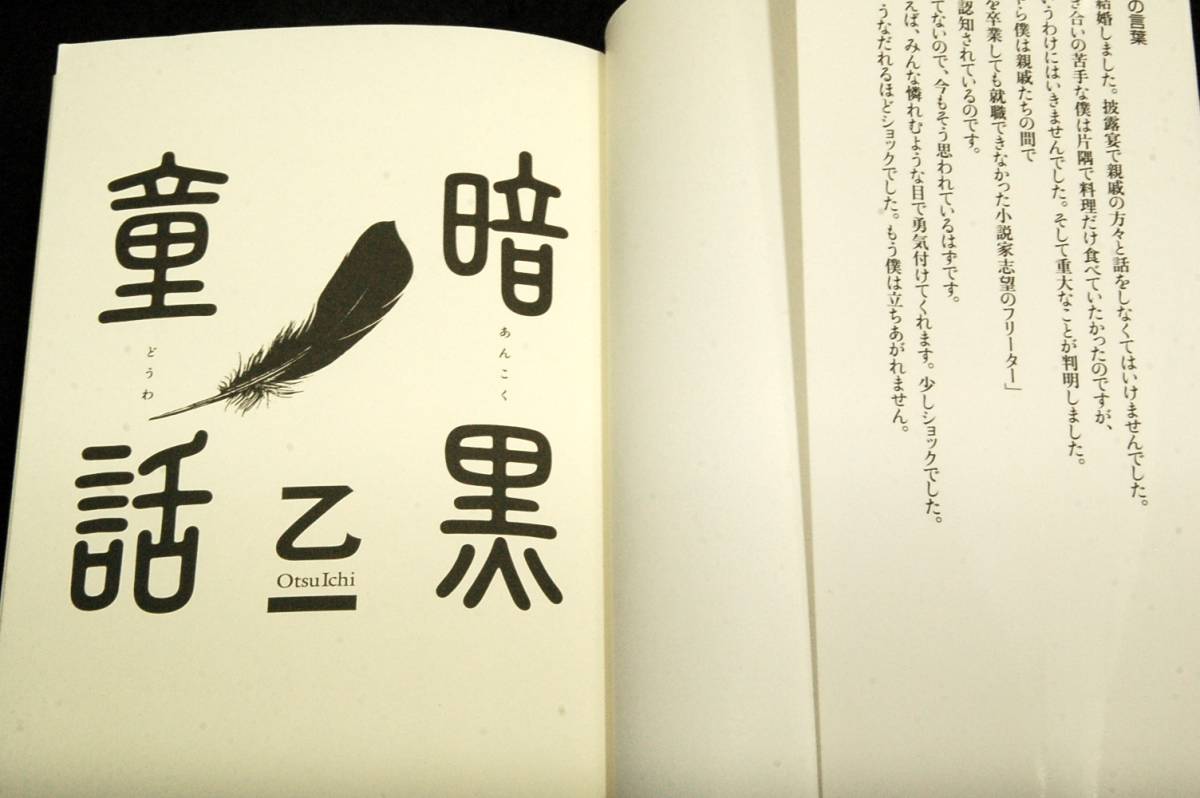 の言葉
結婚しました。披露宴で親戚の方々と話をしなくてはいけませんでした。
き合いの苦手な僕は片隅で料理だけ食べていたかったのですが、
いうわけにはいきませんでした。そして重大なことが判明しました。
ら僕は親戚たちの間で
を卒業しても就職できなかった小説家志望のフリーター」
認知されているのです。
てないので、今もそう思われているはずです。
えば、みんな憐れむような目で勇気付けてくれます。少しショックでした。
うなだれるほどショックでした。もう僕は立ちあがれません。
暗黒
あんこく
童話
どうわ
乙一
OtsuIchi